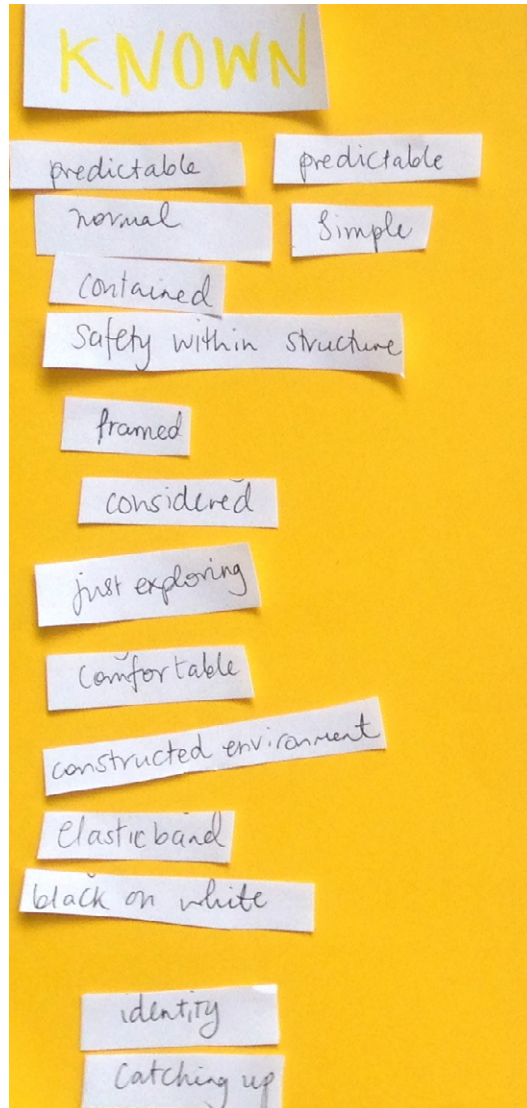 KNOWN
predictable predictable
normal Simple
contained
Safety within structure
framed
considered
just exploring
comfortable
constructed environment
Elastic band
black on white
identity
Catching up